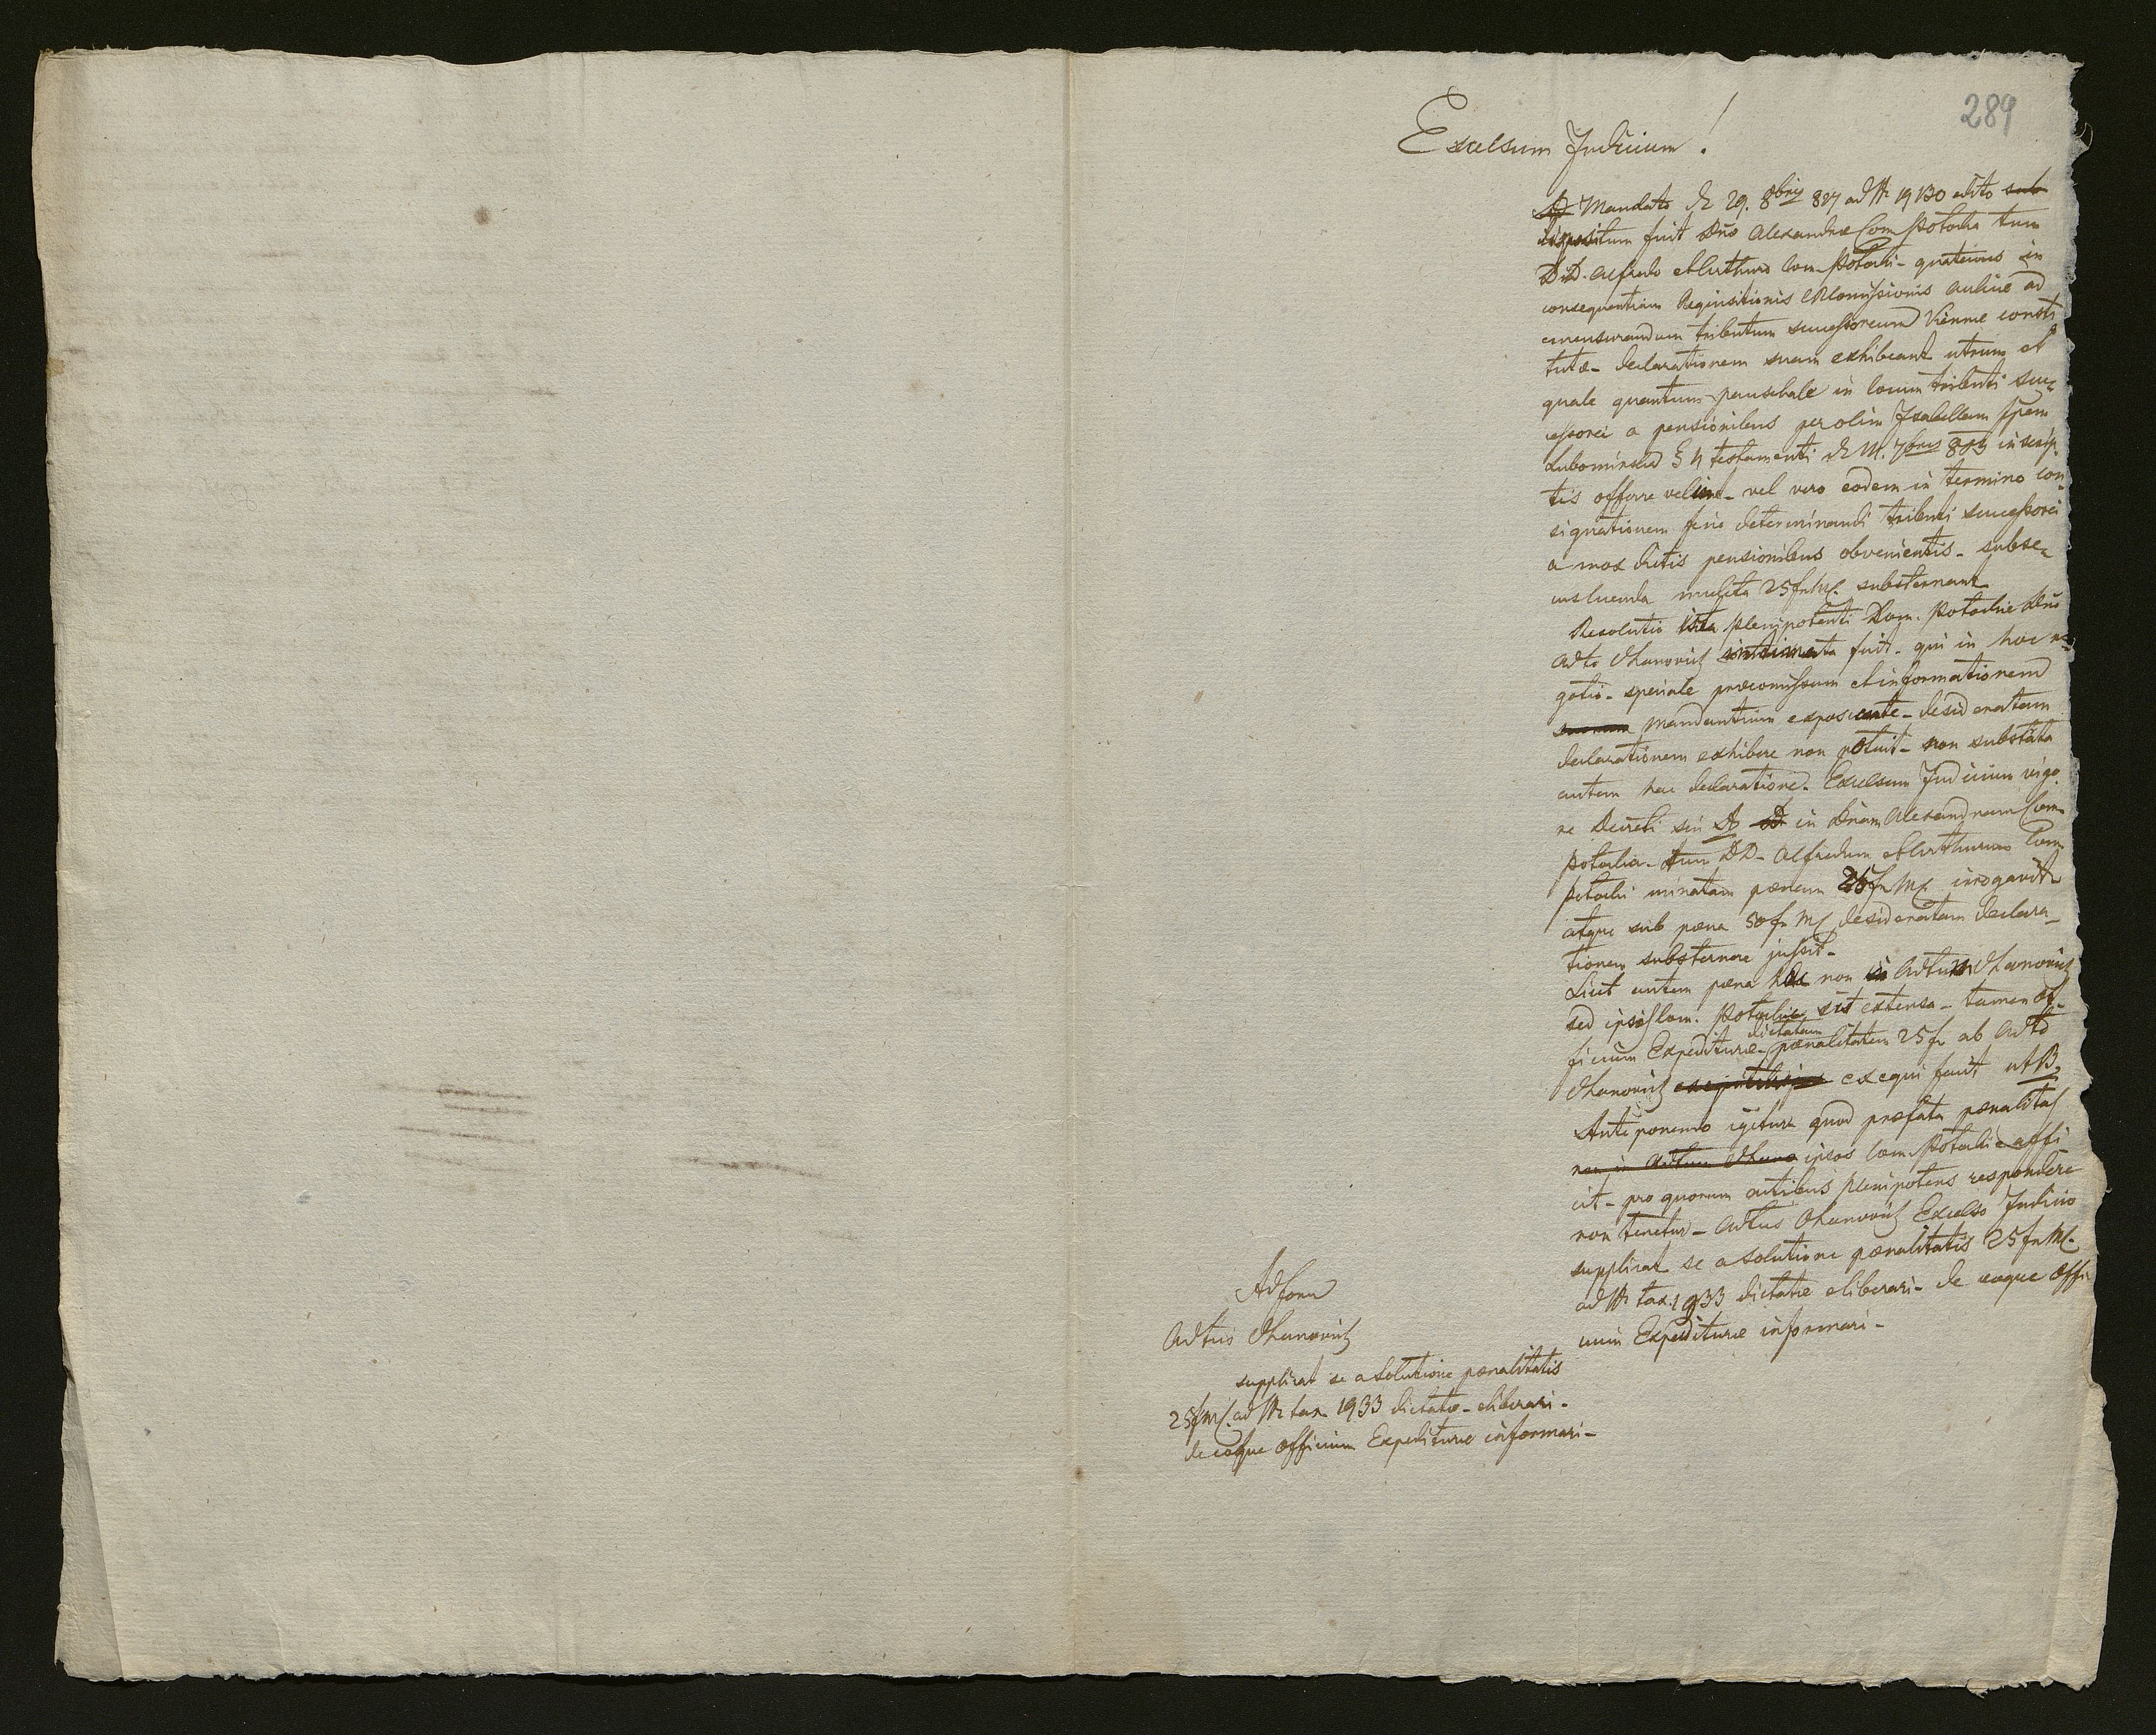 289
Excelsum Judicium!
Mandato d 29. 8bris 827 ad Nr 19130 edito sub
dispositum fuit Dnae Alexandrae Com Potocka tum
D.D. Alfredo et Arthuro Com. Potocki - quatenus in
consequentiam Requisitionis C R Comissionis aulicae ad
emensurandum tributum successoreum Viennae consti
tutae - declarationem suam exhibeant utrum et
quale quantum pauschale in locum tributi suc
cessorei a pensionibus per olim Isabellam Ppem
Lubomirska § 4 testamenti d 7bris inscrip
tis offerre velint - vel vero eodem in termino con
signationem fine determinandi tributi successorei
a mox dictis pensionibus obvenientis - subse
cus luenda mulcta 25 fr MC. substernant
Resolutio ista plenipotenti Dom. Potockie Dno
Advto Ohanowicz intimata fuit - qui in hoc ne
gotio - speciale praecomissum et informationem
suorum mandantium exposcente - desideratam
declarationem exhibere non potuit - non substrata
autem hac declaratione - Excelsum Judicium vigo
re Decreti sin A in Dnam Alexandram Com
Potocka - tum DD - Alfredum et Arthurum Com
Potocki minatam poenam 25 fr MC irrogavit
atque sub poena 50 fr MC desideratam declara-
tionem substernere jussit -
Licet autem poena haec non in Advtum Ohanowicz
sed ipsos Com. Potockie sit extensa - tamen Of-
dictatam
ficium Expediturae - poenalitatem 25 fr ab Advto
Ohanowicz exequi fecit ut B.
Anteponendo igitur quod praefata poenalitas
non in Advtum Ohano ipsos Com Potockie affi
cit - pro quorum actibus plenipotens respondere
non tenetur - Advtus Ohanowicz Excelso Judicio
supplicat se a solutione poenalitatis 25 fr MC.
ad Nr tax. 1933 dictatae eliberari - de eoque Offi
cium Expediturae informari -
Ad forn
Advtus Ohanowicz
supplicat se a solutione poenalitatis
25 fr MC. ad Nr tax. 1933 dictatae - eliberari -
de eoque Officium Expediturae informari -